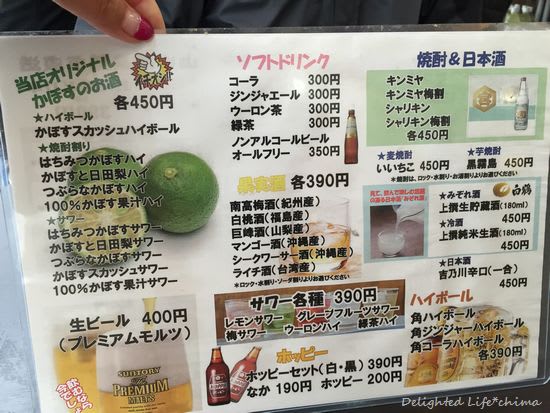 当店オリジナル
かぼすのお酒
各450円
★ハイボール
かぼすスカッシュハイボール
★焼酎割り
はちみつかぼすハイ
かぼすと日田梨ハイ
つぶらなかぼすハイ
100%かぼす果汁ハイ
★サワー
はちみつかぼすサワー
かぼすと日田梨サワー
つぶらなかぼすサワー
かぼすスカッシュサワー
100%かぼす果汁サワー
生ビール 400円
(プレミアムモルツ)
SUNTORY
THE
PREMIUM
MALT'S
飲むなら
今でしょ
ソフトドリンク
コーラ 300円
ジンジャエール 300円
ウーロン茶 300円
緑茶 300円
ノンアルコールビール
オールフリー 350円
果実酒 各390円
南高梅酒(紀州産)
白桃酒(福島産)
巨峰酒(山梨産)
マンゴー酒(沖縄産)
シークワーサー酒(沖縄産)
ライチ酒(台湾産)
*ロック・水割り・ソーダ割りよりお選びください
サワー各種 390円
レモンサワー グレープフルーツサワー
梅サワー ウーロンハイ 緑茶ハイ
ホッピー
ホッピーセット(白・黒)390円
なか 190円 ホッピー 200円
焼酎&日本酒
キンミヤ
キンミヤ梅割
シャリキン
シャリキン梅割
各450円
★麦焼酎 ★芋焼酎
いいちこ 450円 黒霧島 450円
*焼酎は、ロック・水割り・お湯割りよりお選びください
見て、飲んで楽しむ話題
の凍る日本酒「みぞれ酒」
★みぞれ酒 白鶴
上撰生貯蔵酒(180ml)
450円
★冷酒
上撰純米生酒(180ml)
450円
★日本酒
吉乃川辛口(一合)
450円
ハイボール
角ハイボール
角ジンジャーハイボール
角コーラハイボール
各390円
Delighted Life*chima